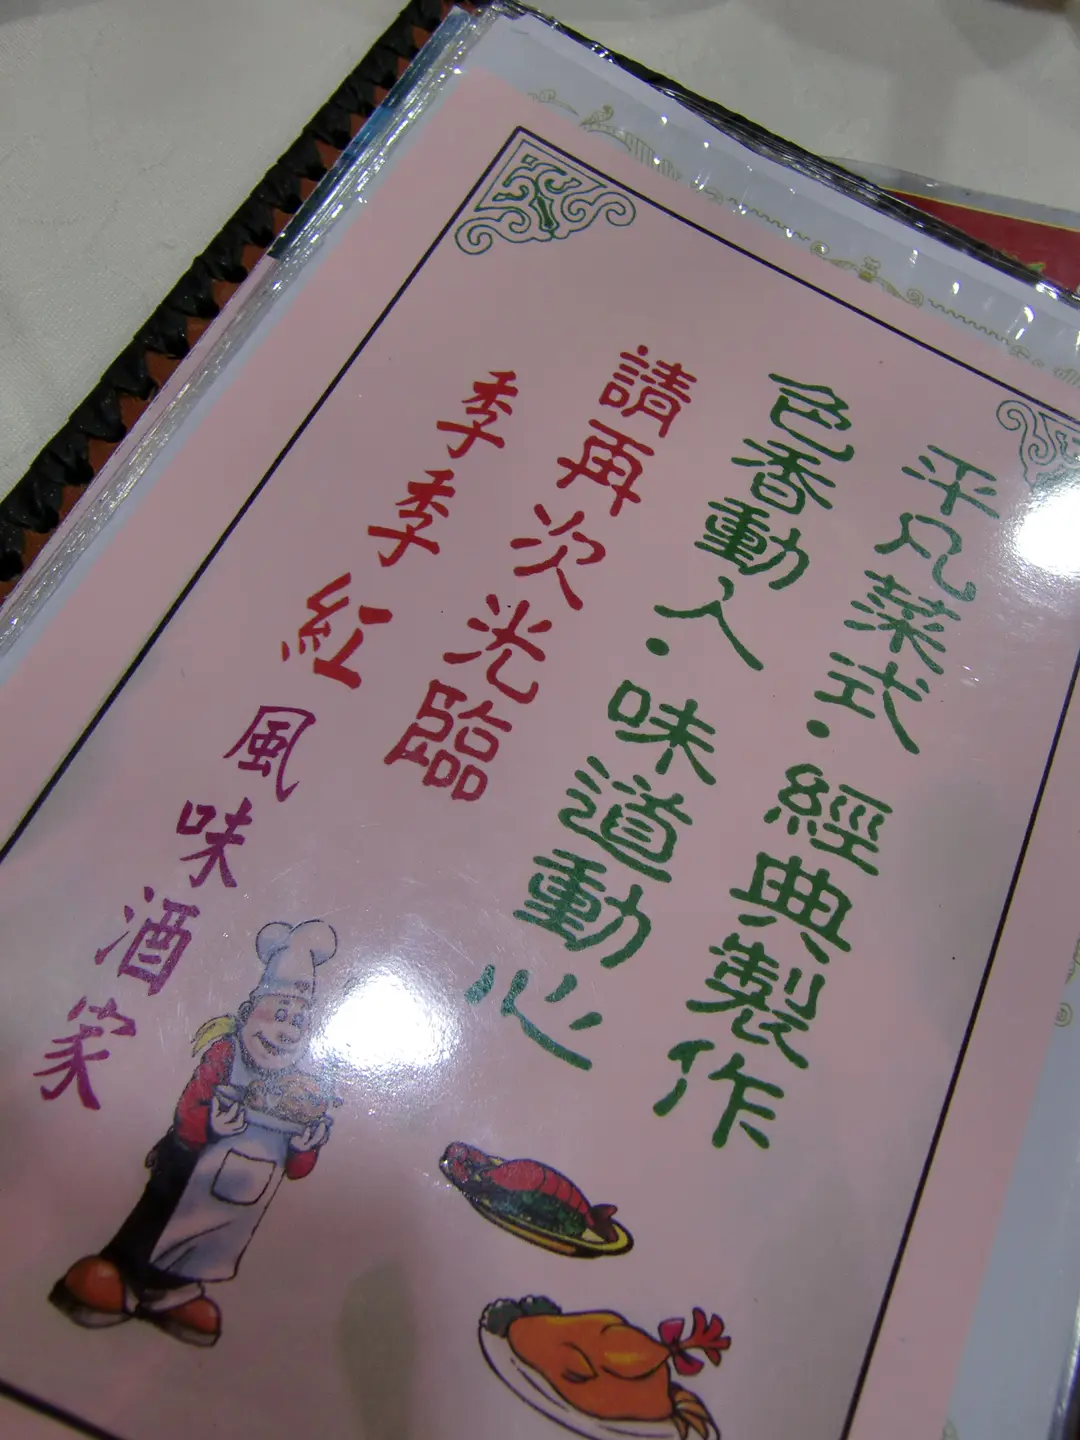 平凡菜式·經典製作
色香動人·味道動心
請再次光臨
季季紅風味酒家